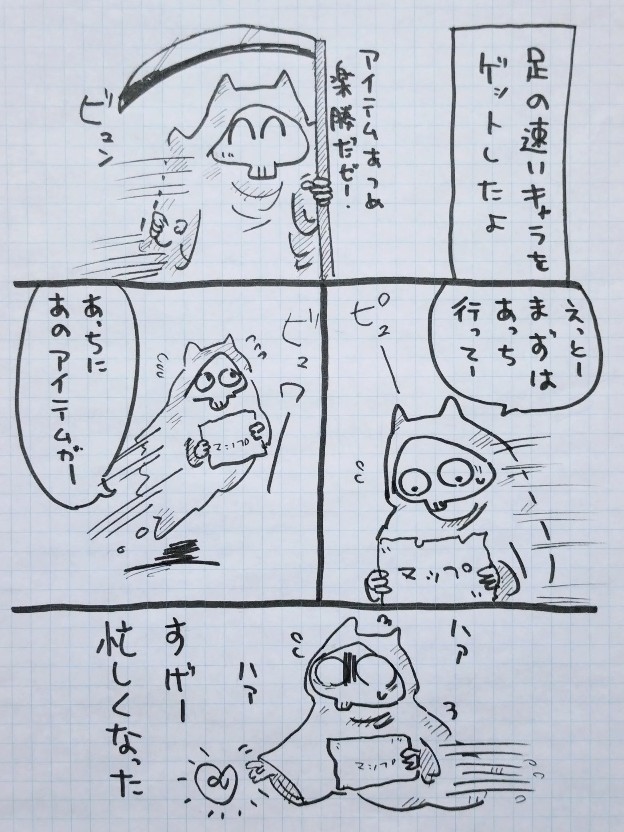 足の速いキャラを
ゲットしたよ
アイテムあつめ
楽勝だぜー!
ビュン
えっとー
まずは
あっち
行ってー
ピューー
マップ
ビュワーー
マップ
あっちに
あのアイテムがー
ハァ
ハァ
マップ
すげー
忙しくなった